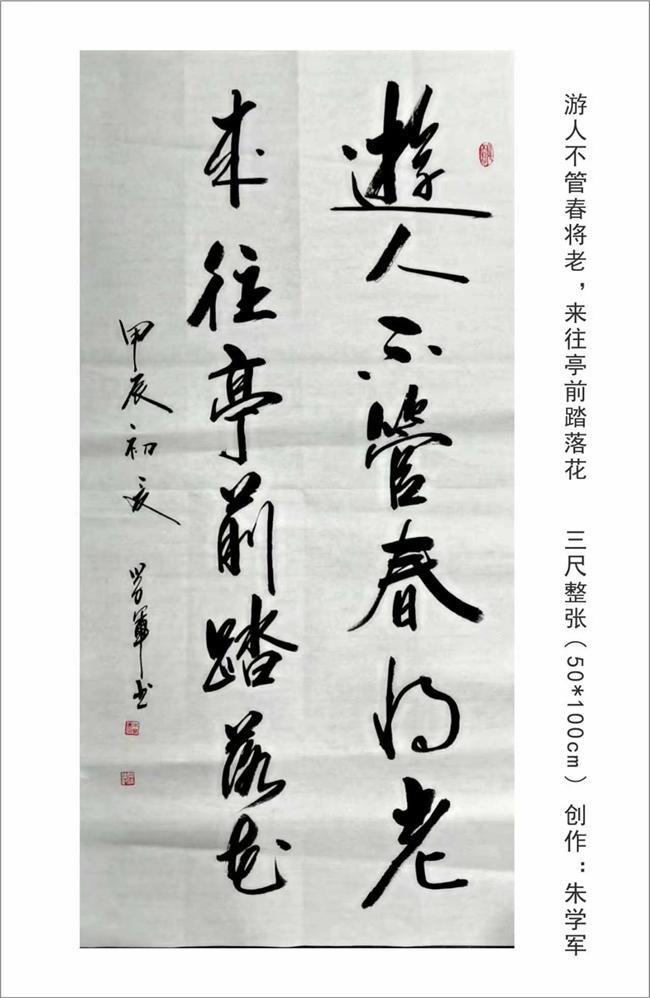 游人不管春将老，来往亭前踏落花 三尺整张（50*100cm） 创作：朱学军
遊人不管春将老
来往亭前踏落花
甲辰初夏 学軍书